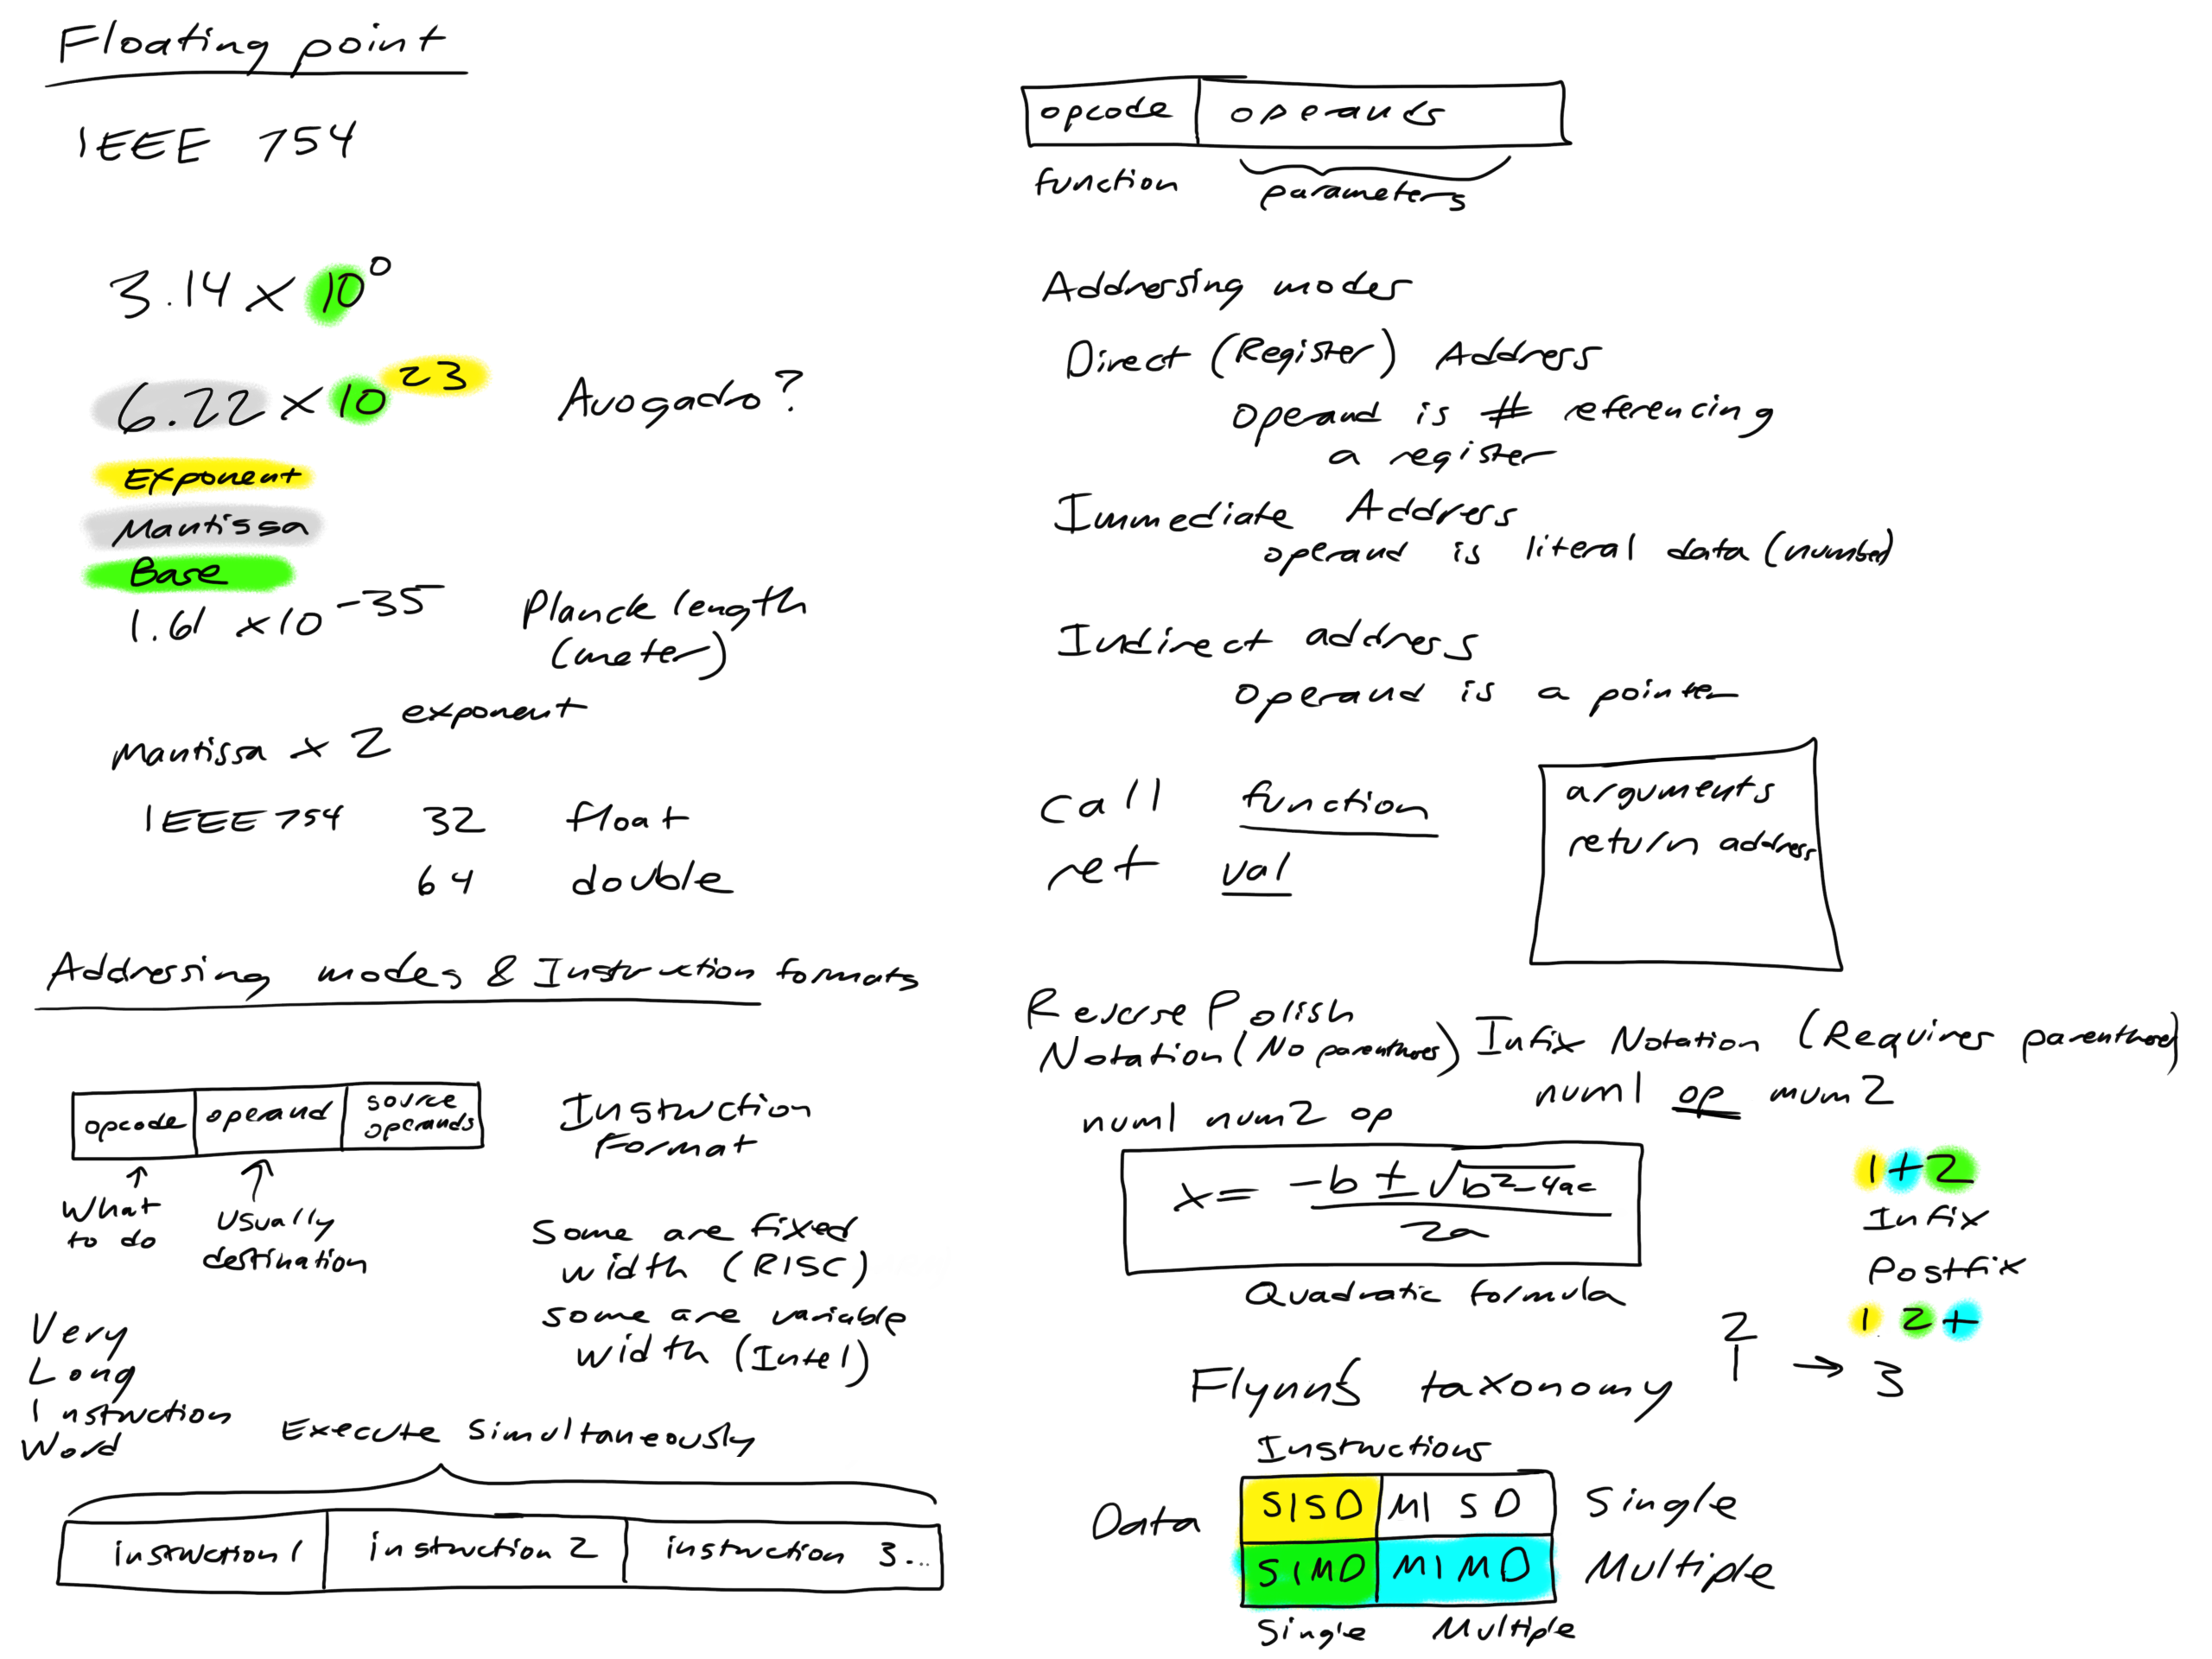 Floating point
IEEE 754
3.14 x 10^0
6.22 x 10^23 Avogadro?
Exponent
Mantissa
Base
1.61 x 10^-35 Planck length
(meter)
Mantissa x 2^exponent
IEEE 754 32 float
64 double
Addressing modes & Instruction formats
opcode operand source
operands
Instruction
Format
↑ What
to do
↑ Usually
destination
Some are fixed
width (RISC)
Some are variable
width (Intel)
Very
Long
Instruction
Word
Execute Simultaneously
instruction 1 instruction 2 instruction 3...
opcode operands
function parameters
Addressing modes
Direct (Register) Address
operand is # referencing
a register
Immediate Address
operand is literal data (number)
Indirect address
operand is a pointer
call function
ret val
arguments
return address
Reverse Polish
Notation (No parentheses)
num1 num2 op
Infix Notation (Requires parentheses)
num1 op num2
x = -b ± √b²-4ac
2a
Quadratic formula
1+2
Infix
Postfix
1 2 +
2
1 → 3
Flynn's taxonomy
Instructions
Data SISD MISD Single
SIMD MIMD Multiple
Single Multiple